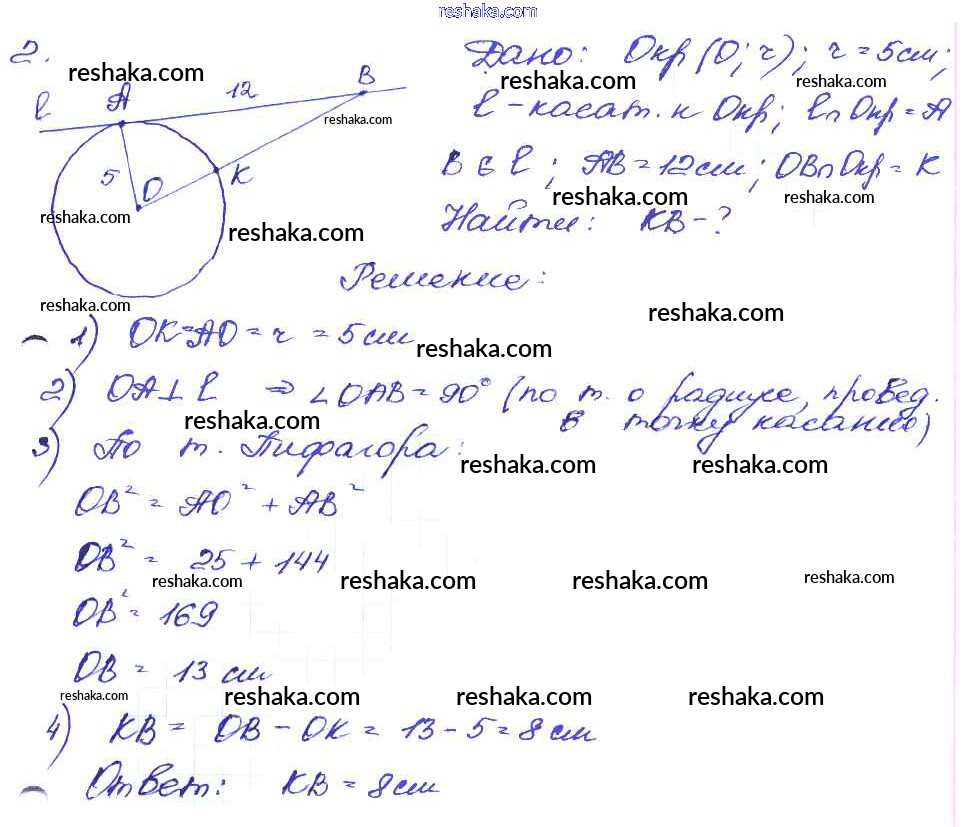 reshaka.com
2.
Дано: Окр (O; r); r = 5см;
reshaka.com
reshaka.com
reshaka.com
A
12
B
l
l - касат. к Окр; l∩Окр = A
reshaka.com
B ∈ l; AB = 12см; OB∩Окр = K
5
O
K
reshaka.com
reshaka.com
reshaka.com
Найти: KB - ?
reshaka.com
Решение:
reshaka.com
reshaka.com
1) OK = AO = r = 5см
reshaka.com
2) OA ⊥ l ⇒ ∠OAB = 90° (по т. о радиусе, провед.
в точку касания)
reshaka.com
3) По т. Пифагора:
reshaka.com
reshaka.com
OB² = AO² + AB²
OB² = 25 + 144
reshaka.com
reshaka.com
reshaka.com
reshaka.com
OB² = 169
OB = 13 см
reshaka.com
reshaka.com
reshaka.com
reshaka.com
4) KB = OB - OK = 13 - 5 = 8 см
Ответ: KB = 8см